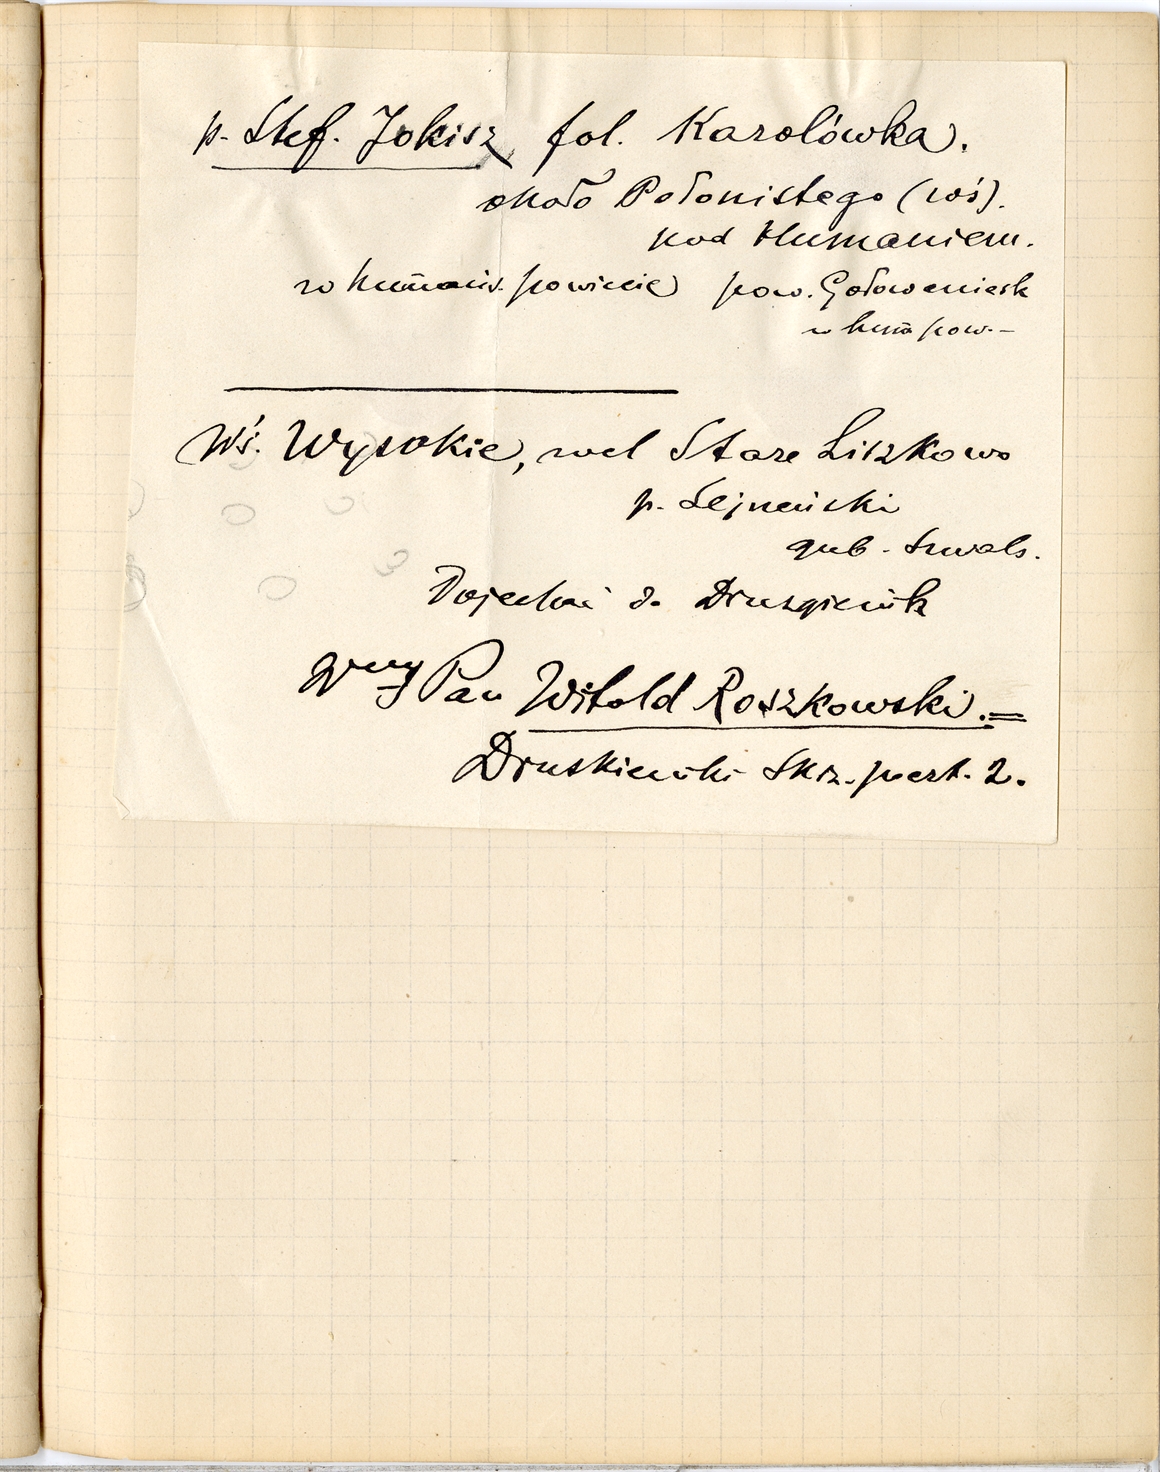 p. Stef. Jokisz fol. Karolówka.
około Połonistego (wś).
pod Humaniem.
w humańs. powiecie pow. Gołowaniesk
w hum pow. –
Wś. Wysokie, vel Stare Liszkowo
p. Sejneński
gub. Suwals.
Dojechać do Druzgienik
Pan Witold Roszkowski. =
Druskieniki Skrz. poczt. 2.